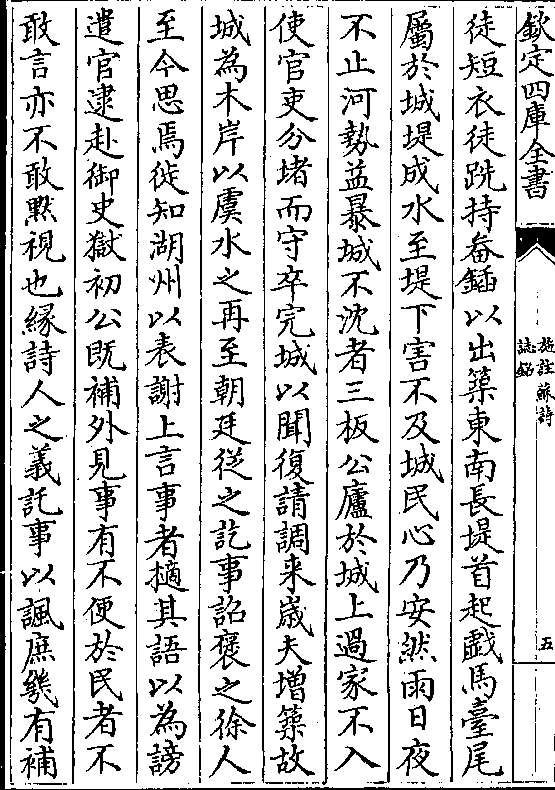 欽定四庫全書
施註蘇詩
誌銘
五
徒短衣徒跣持畚鍤以出築東南長堤首起戲馬臺尾
屬於城堤成水至堤下害不及城民心乃安然雨日夜
不止河勢益暴城不沈者三板公廬於城上過家不入
使官吏分堵而守卒完城以聞復請調来嵗夫增築故
城為木岸以虞水之再至朝廷從之訖事詔襃之徐人
至今思焉徙知湖州以表謝上言事者擿其語以為謗
遣官逮赴御史獄初公既補外見事有不便於民者不
敢言亦不敢黙視也縁詩人之義託事以諷庶幾有補